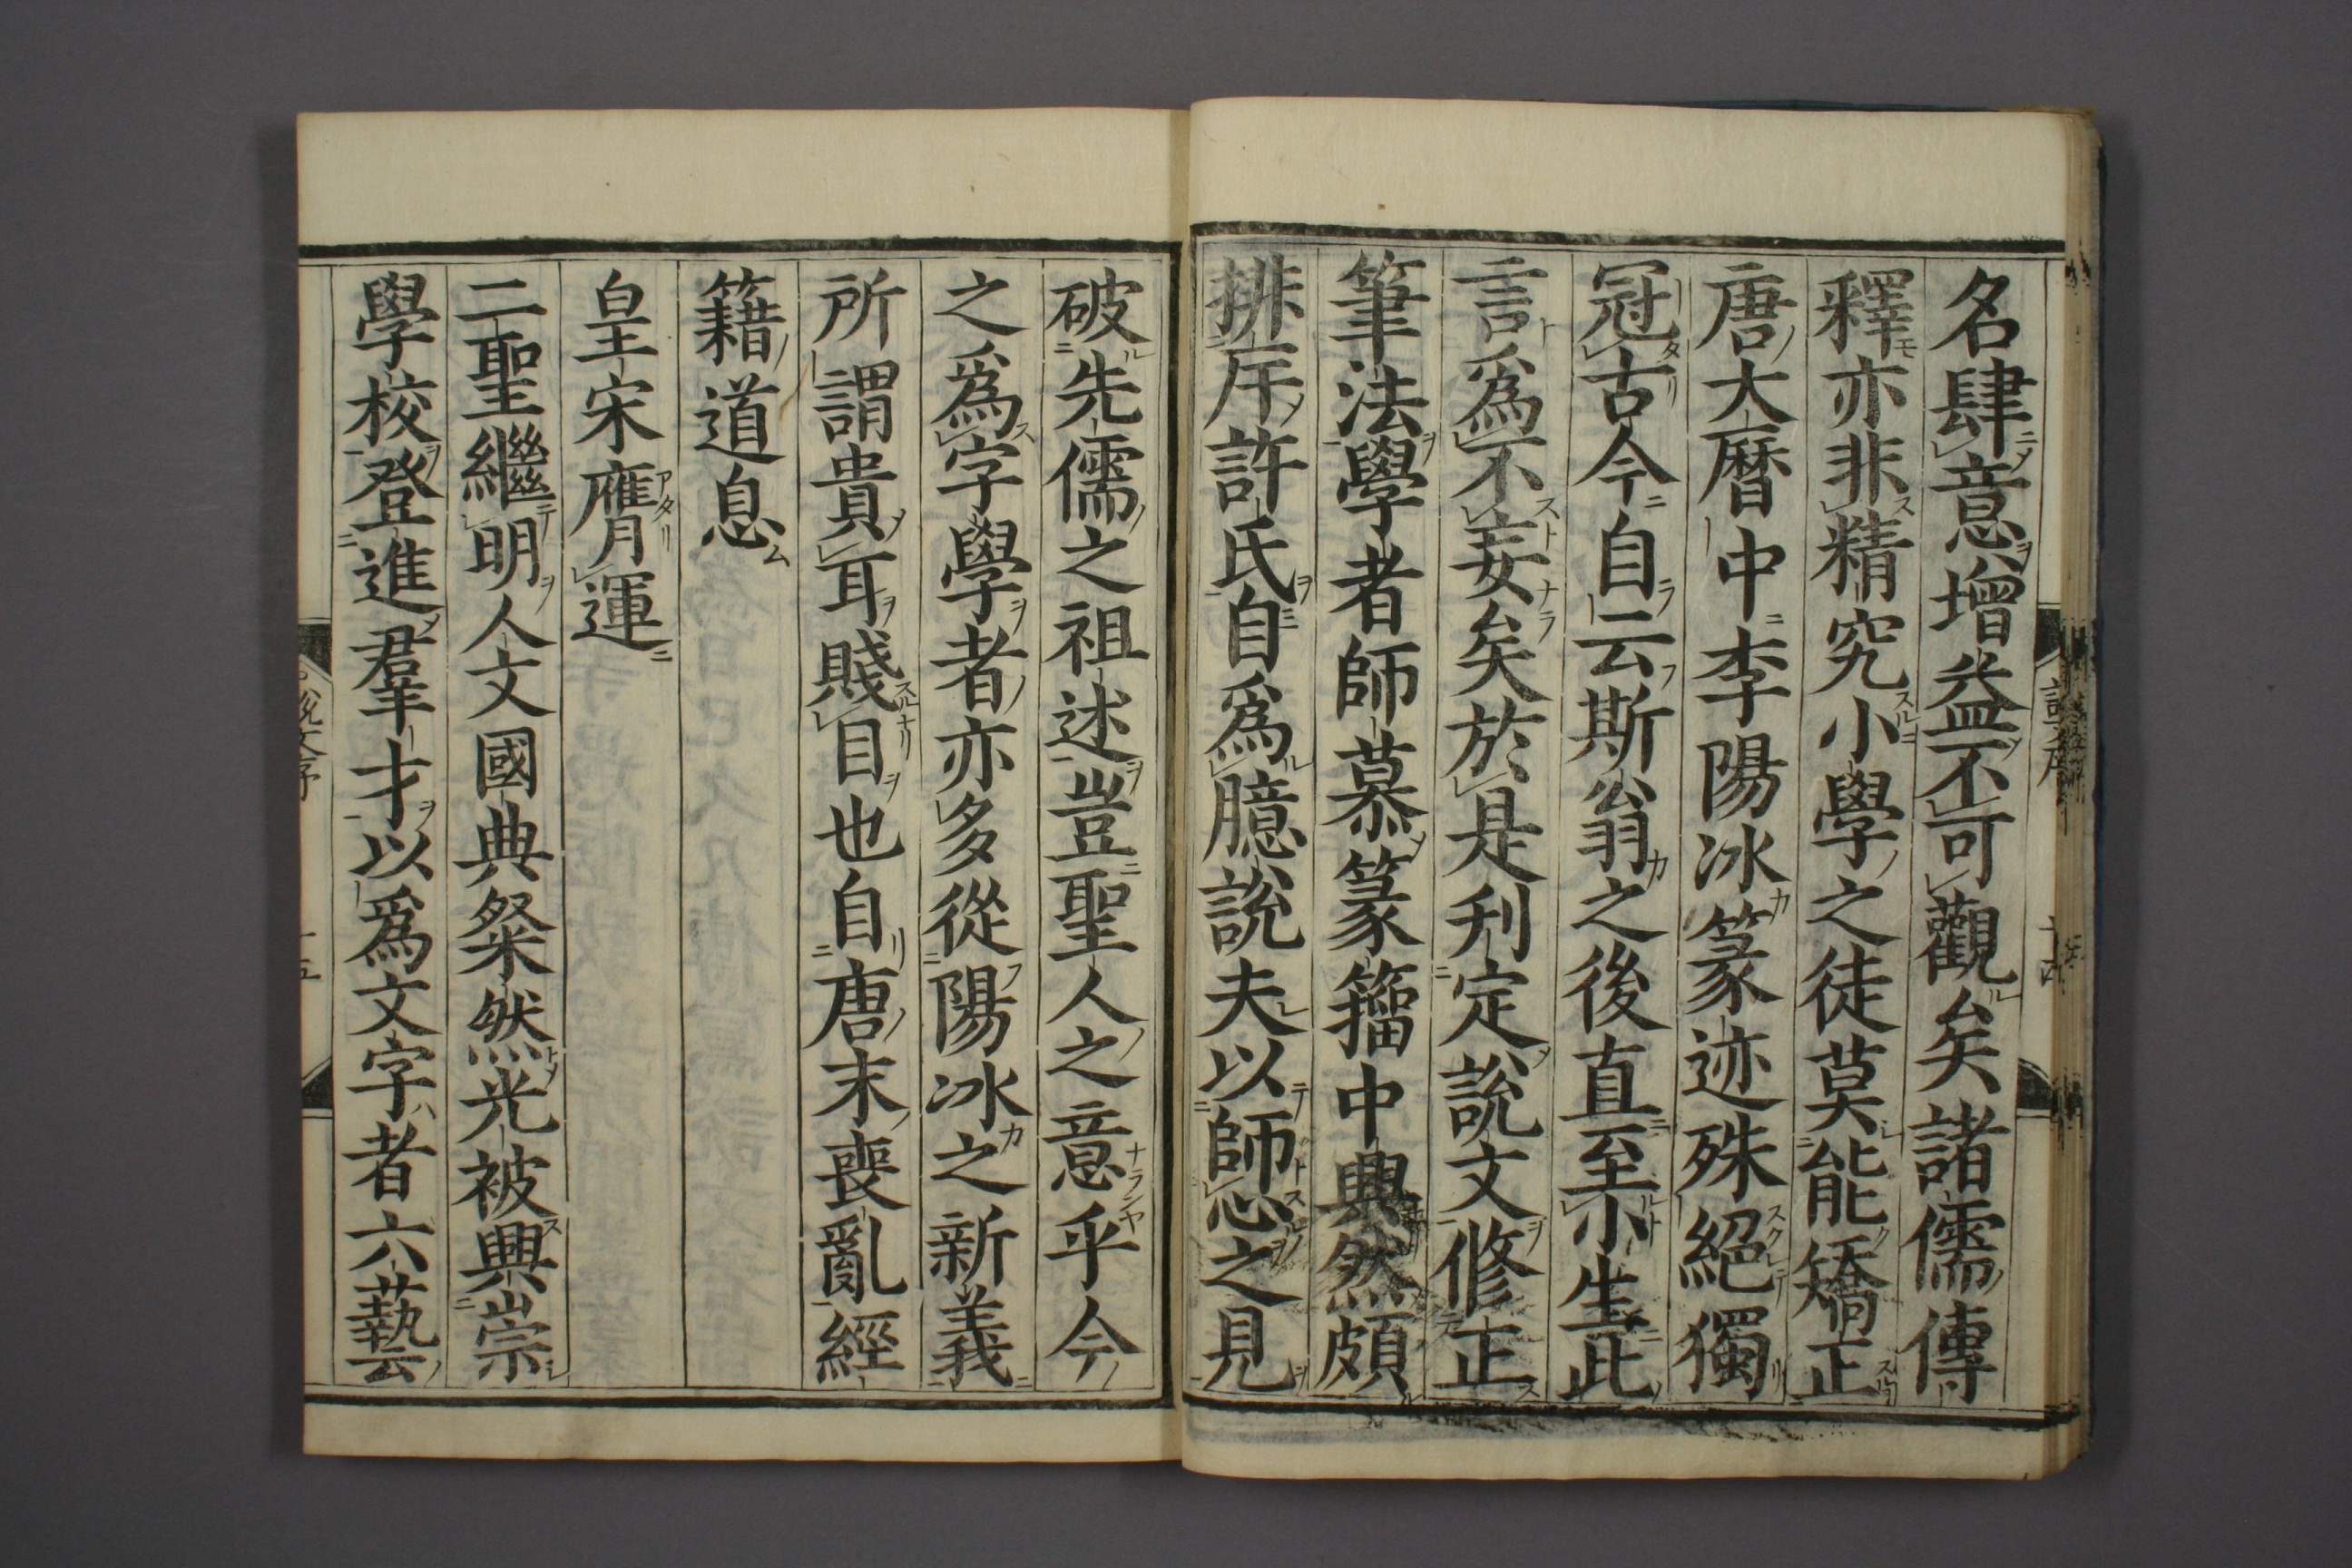 名肆意增益不可觀矣諸儒傳
釋亦非精究小學之徒莫能矯正
唐大曆中李陽冰篆迹殊絕獨
冠古今自云斯翁之後直至小生此
言爲不妄矣於是刋定說文修正
筆法學者師慕篆籀中興然頗
排斥許氏自爲臆說夫以師心之見
破先儒之祖述豈聖人之意乎今
之爲字學者亦多從陽冰之新義
所謂貴耳賤目也自唐末喪亂經
籍道息
皇宋膺運
二聖繼明人文國典粲然光被興崇
學校登進羣才以爲文字者六藝
說文序
十五